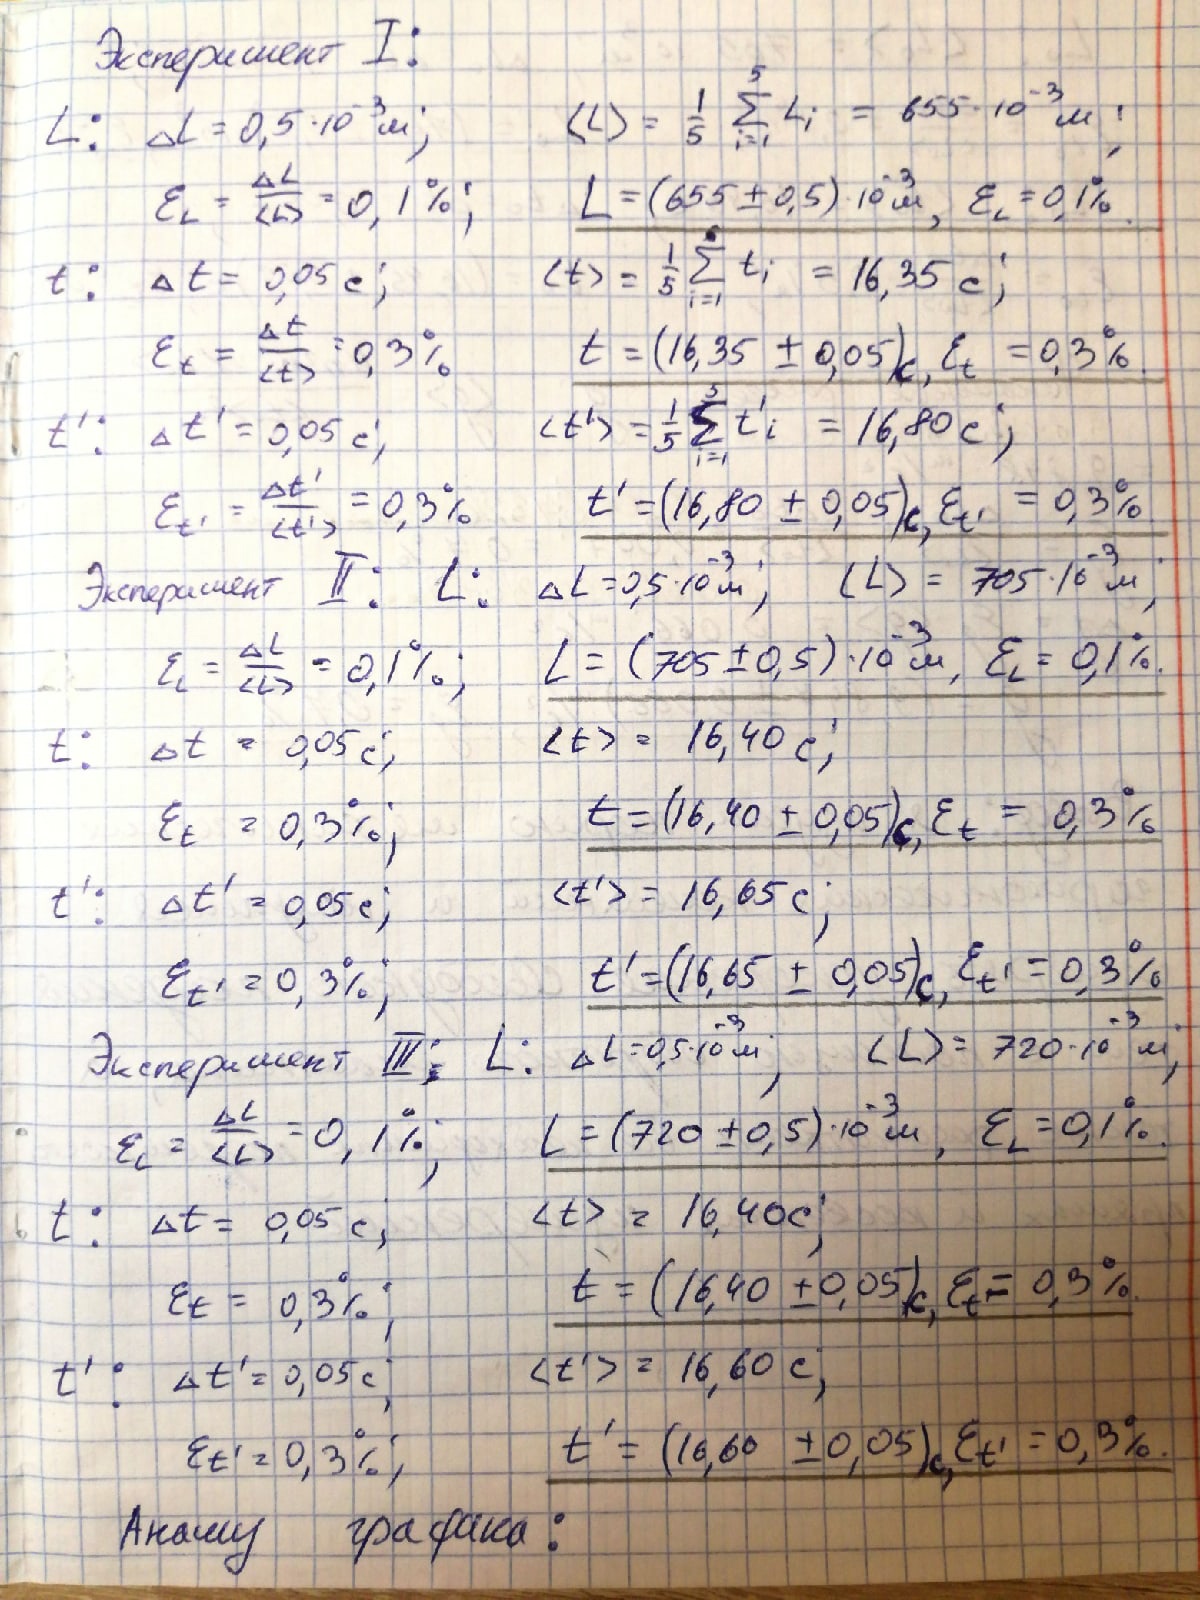 Эксперимент I:
L: ΔL = 0,5·10⁻³м; ⟨L⟩ = 1/5 Σ_{i=1}^{5} L_i = 655·10⁻³м;
ε_L = ΔL/⟨L⟩ = 0,1%; L = (655 ± 0,5)·10⁻³м, ε_L = 0,1%.
t: Δt = 0,05 с; ⟨t⟩ = 1/5 Σ_{i=1}^{5} t_i = 16,35 с;
ε_t = Δt/⟨t⟩ = 0,3% t = (16,35 ± 0,05)с, ε_t = 0,3%.
t': Δt' = 0,05 с; ⟨t'⟩ = 1/5 Σ_{i=1}^{5} t'_i = 16,80 с;
ε_t' = Δt'/⟨t'⟩ = 0,3% t' = (16,80 ± 0,05)с, ε_t' = 0,3%
Эксперимент II: L: ΔL = 0,5·10⁻³м; ⟨L⟩ = 705·10⁻³м;
ε_L = ΔL/⟨L⟩ = 0,1%; L = (705 ± 0,5)·10⁻³м, ε_L = 0,1%.
t: Δt = 0,05 с; ⟨t⟩ = 16,40 с;
ε_t = 0,3%; t = (16,40 ± 0,05)с, ε_t = 0,3%
t': Δt' = 0,05 с; ⟨t'⟩ = 16,65 с;
ε_t' = 0,3%; t' = (16,65 ± 0,05)с, ε_t' = 0,3%
Эксперимент III: L: ΔL = 0,5·10⁻³м; ⟨L⟩ = 720·10⁻³м;
ε_L = ΔL/⟨L⟩ = 0,1%; L = (720 ± 0,5)·10⁻³м, ε_L = 0,1%.
t: Δt = 0,05 с; ⟨t⟩ = 16,40 с;
ε_t = 0,3%; t = (16,40 ± 0,05)с, ε_t = 0,3%.
t': Δt' = 0,05 с; ⟨t'⟩ = 16,60 с;
ε_t' = 0,3%; t' = (16,60 ± 0,05)с, ε_t' = 0,3%.
Анализ графика: